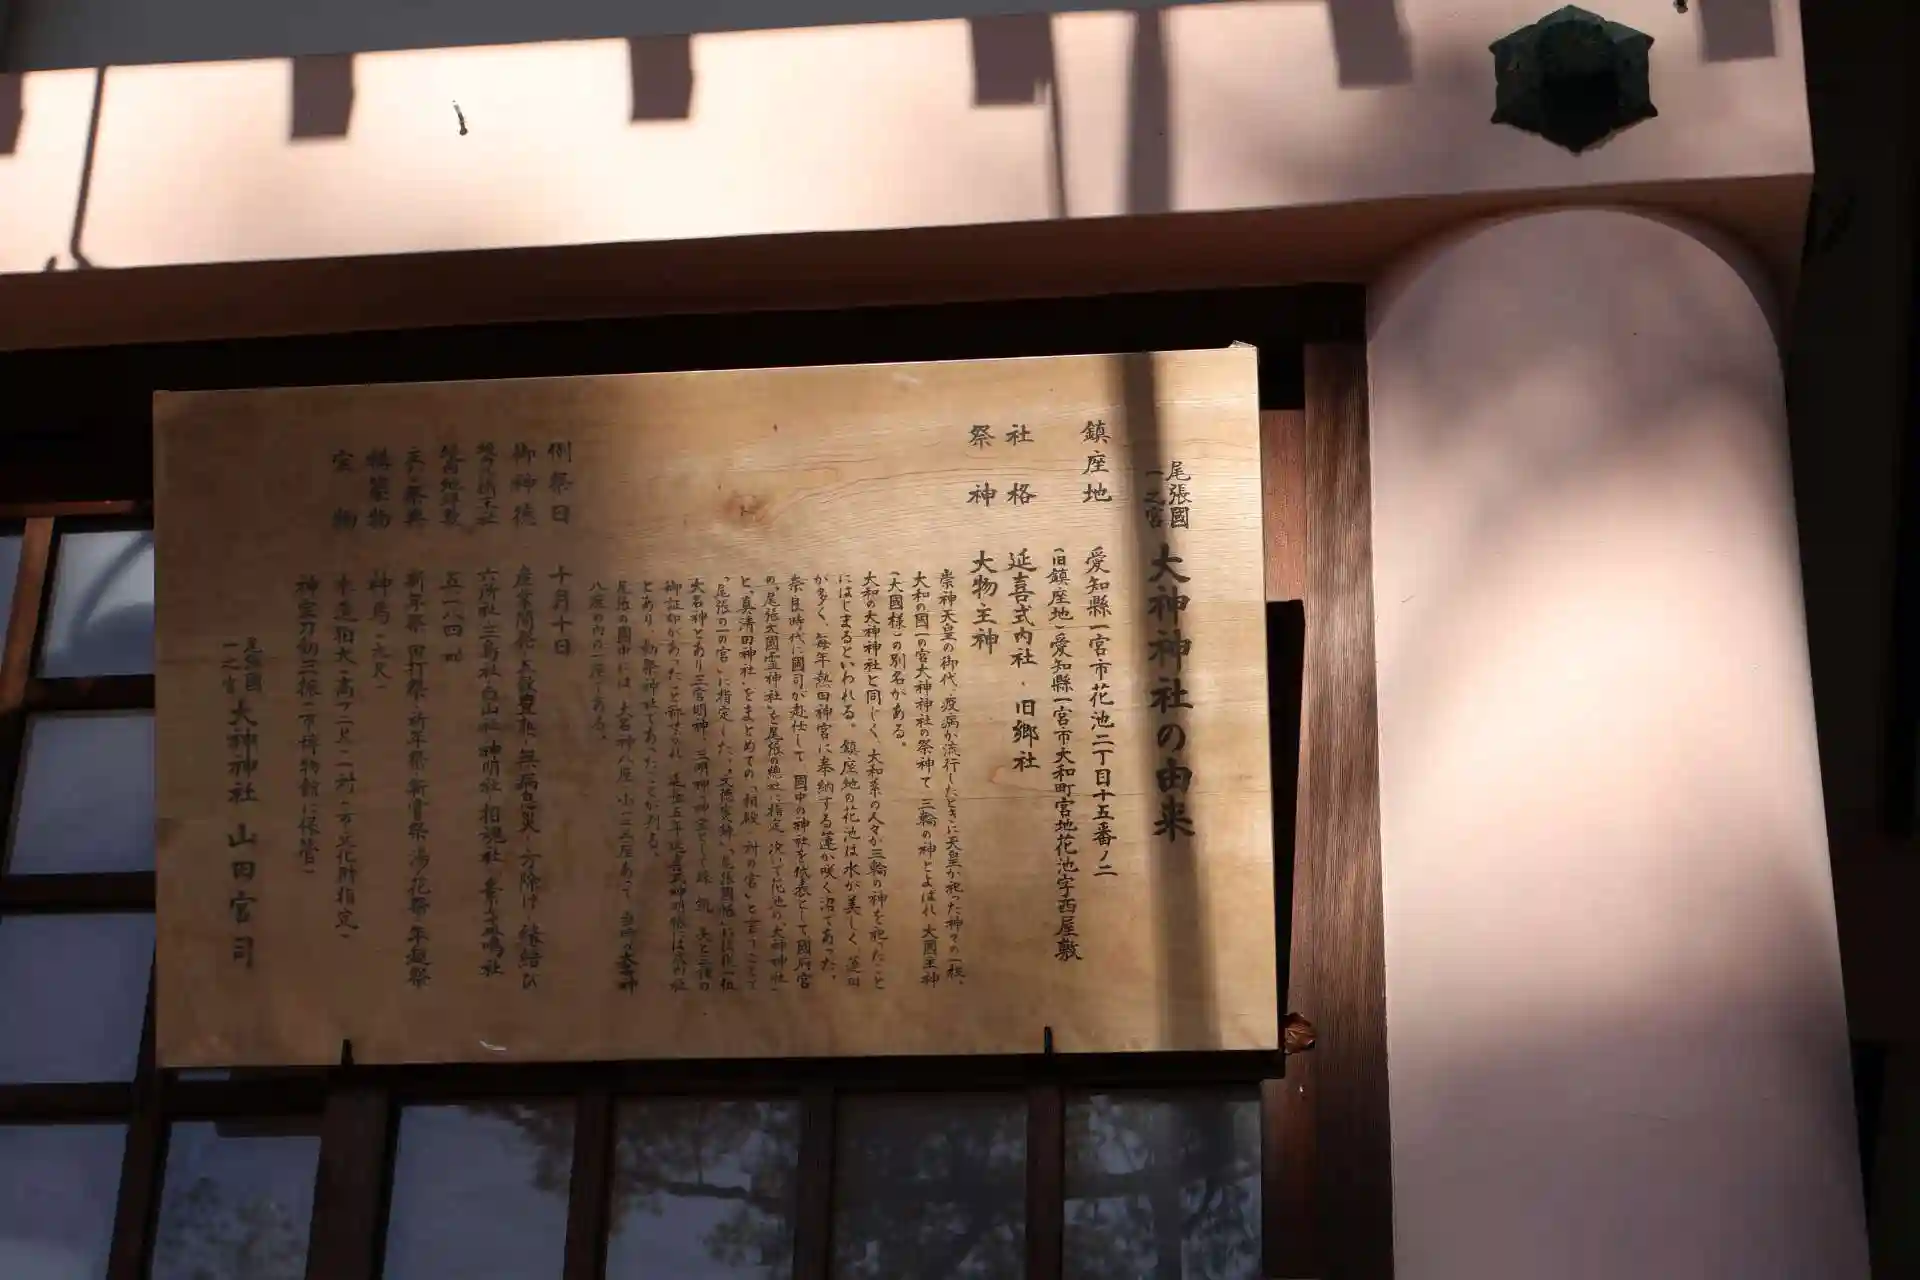 尾張國
一之宮
大神神社の由来
鎮座地 愛知縣一宮市花池二丁目十五番ノ二
(旧鎮座地)愛知縣一宮市大和町宮地花池字西屋敷
社格 延喜式内社・旧郷社
祭神 大物主神
崇神天皇の御代、疫病が流行したときに天皇が祀った神々の一柱、
大和の國一の宮大神神社の祭神で、三輪の神とよばれ、大國主神
(大國様)の別名がある。
大和の大神神社と同じく、大和系の人々が三輪の神を祀ったこと
にはじまるといわれる。鎮座地の花池は水が美しく、蓮田
が多く、毎年熱田神宮に奉納する蓮が咲く沼であった。
奈良時代に國司が赴任して、國中の神社を代表として國府宮
の「尾張大國霊神社」を尾張の總社に指定、次いで花池の「大神神社」
と、「真清田神社」をまとめての「相殿・対の宮」と言うことで
「尾張の一の宮」に指定した。「文徳実録」「尾張國帳」に従一位
大名神とあり三宮明神、三明神
御証印があったこと 延喜五年延喜式神明帳には
とあり、勅祭神社であったことが判る。
尾張の國中には、大名神八座・小 座あって、当 大神
八座の内の一座である。
例祭日 十月十日
御神徳 産業開発・五穀豊熟・無病息災・方除け・縁結び
六所社・三島社・白山社・神明社・相魂社 社
境内地坪数 五一八四㎡
主な祭典 新年祭・祈年祭・新嘗祭・湯花祭・年越祭
構築物 神馬
宝物 木造狛犬(高一、二尺)二対(市文化財指定)
神宝刀剣三振(市博物館に保管)
尾張國
一之宮
大神神社 山田宮司